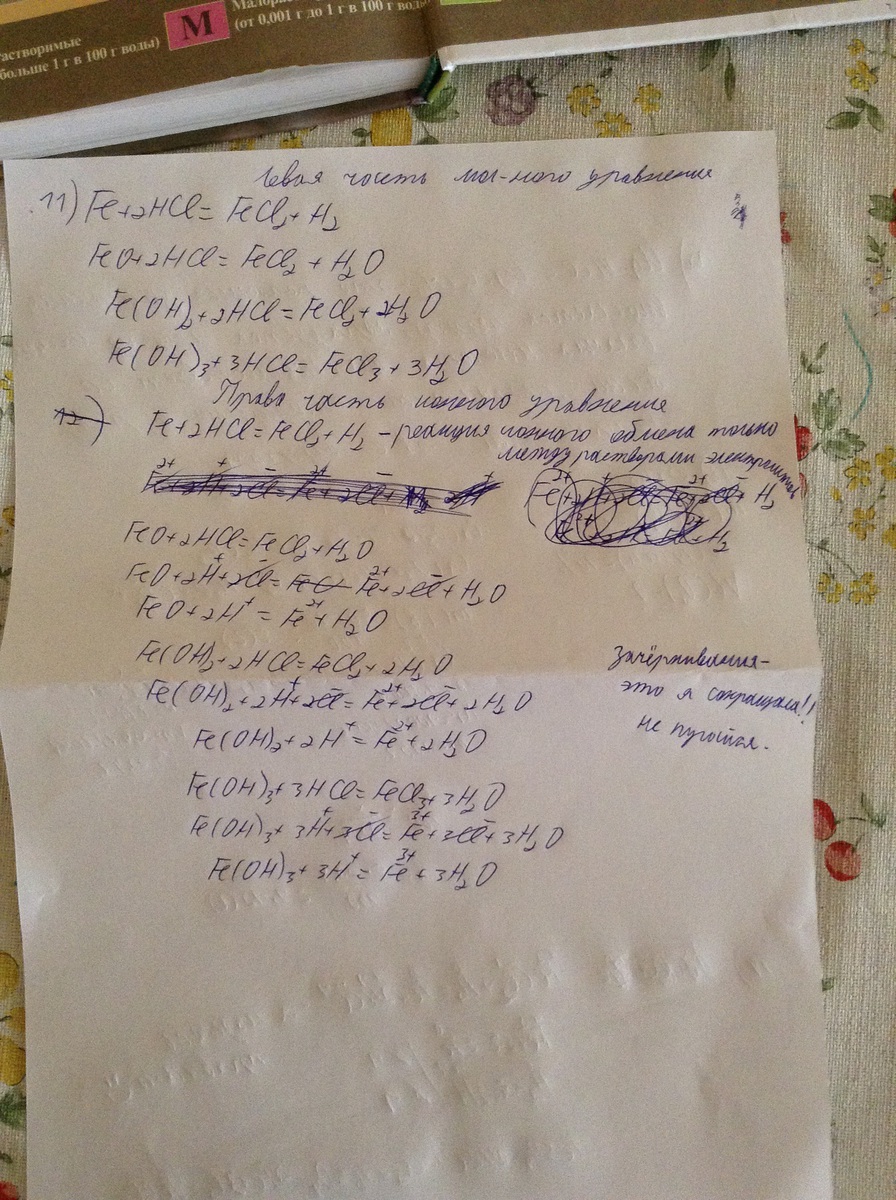 астворимые
больше 1 г в 100 г воды)
М
(от 0,001 г до 1 г в 100 г воды
Левая часть мол-ного уравнения
11) Fe+2HCl= FeCl₂+H₂
FeO+2HCl=FeCl₂ + H₂O
Fe(OH)₂+2HCl=FeCl₂+2H₂O
Fe(OH)₃+3HCl= FeCl₃+3H₂O
Права часть ионного уравнения
12)
Fe+2HCl=FeCl₂+H₂ - реакция ионного обмена только
между растворами электролитов
FeO+2HCl=FeCl₂+H₂O
FeO+2H⁺+2Cl⁻= Fe²⁺+2Cl⁻+H₂O
FeO+2H⁺= Fe²⁺+H₂O
Fe(OH)₂+2HCl=FeCl₂+2H₂O
Fe(OH)₂+2H⁺+2Cl⁻=Fe²⁺+2Cl⁻+2H₂O
Fe(OH)₂+2H⁺=Fe²⁺+2H₂O
Зачёркивания-
это я сокращала!!
не пугайся.
Fe(OH)₃+3HCl=FeCl₃+3H₂O
Fe(OH)₃+3H⁺+3Cl⁻=Fe³⁺+3Cl⁻+3H₂O
Fe(OH)₃+3H⁺= Fe³⁺+3H₂O